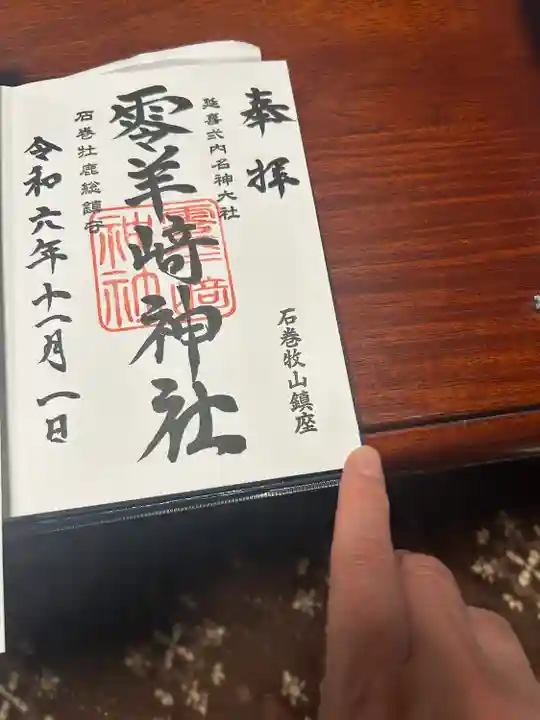 奉拝
石巻牧山鎮座
延喜式内名神大社
零羊﨑神社
石巻牡鹿総鎮守
令和六年十一月一日
零羊﨑
神社